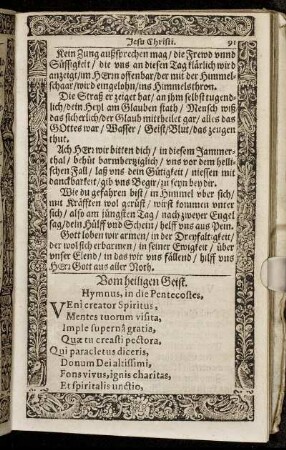 Jesu Christi. 91
Kein Zung außsprechen mag / die Frewd vnnd
Süssigkeit / die vns an diesen Tag klärlich wird
anzeigt / im HErrn offenbar / der mit der Himmel-
schaar / wird eingelohn / ins Himmelsthron.
Die Straß er zeiget har / an ihm selbst tugend-
lich / dein Heyl am Glauben staht / Mensch wiß
das sicherlich / der Glaub mittheilet gar / alles das
GOttes war / Wasser / Geist / Blut / das zeugen
thut.
Ach HErr wir bitten dich / in diesem Jammer-
thal / behüt barmhertziglich / vns vor dem helli-
schen Fall / laß vns dein Gütigkeit / niessen mit
danckbarkeit / gib vns Begir / zu seyn bey dir.
Wie du gefahren bist / in Himmel vber sich /
mit Kräfften wol gerüst / wirst kommen vnter
sich / also am jüngsten Tag / nach zweyer Engel
sag / dein Hülff vnd Schein / helff vns aus Pein.
Gott loben wir armen / in der Dreyfaltigkeit /
der wol sich erbarmen / in seiner Ewigkeit / über
vnser Elend / in das wir vns fällend / hilff vns
HErr Gott aus aller Noth.
Vom heiligen Geist.
Hymnus, in die Pentecostes,
VEni creator Spiritus,
Mentes tuorum visita,
Imple supernâ gratia,
Quæ tu creasti pectora.
Qui paracletus diceris,
Donum Dei altissimi,
Fons vivus, ignis charitas,
Et spiritalis unctio,